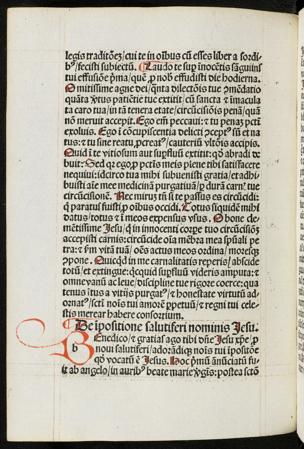 legis traditõez/ cui te in oĩbus cũ esses liber a sordi⸗
bꝰ/ fecisti subiectũ. Laudo te sup ĩnocẽtis sãguinis
tui effusiõe p̃ma/ quẽ ꝓ nob̃ effudisti die hodierna.
O mitissime agne dei/ q̃nta dilectiõis tue ꝯmẽdatio
quãta xp̃tus patiẽtie tue extirit/ cũ sancta ⁊ ĩmacula
ta caro tua/ in tã tenera etate/ circũcisiõis penã/ quã
nõ meruit accepit. Ego em̃ peccaui: ⁊ tu penaʒ pctĩ
exoluis. Ego ĩ cõcupiscentia delicti ꝯceptꝰ sũ et na
tus: ⁊ tu sine reatu ꝓcreatꝰ/ cauteriũ vltõis accipis.
Quid ĩ te vitiosum aut supfluũ extitit: qd̃ abradi de
buit: Sed qz ego p̃ pctĩs meis plene tibi satisfacere
nequiui: idcirco tua mihi subuenisti gratia/ et adhi
buisti aĩe mee medicinã purgatiuã/ p̃ durã carnĩ tue
circũcisionẽ. Me nimiꝝ tñ si te passus es circũcidi:
q̃ paratus fuisti ꝓ oĩbus occidi. Totus siquidẽ mihi
datus/ totus ⁊ ĩ meos expensus vsus. O bone cle⸗
mẽtissime Jesu/ q̃ in innocenti corpe tuo circũcisõz
accepisti carnis: circũcide oĩa mẽbra mea spũali pe
tra: ⁊ p̃m vitã tuã/ oẽs actus meos ordina/ moresqz
ꝯpone. Quicqd̃ in me carnalitatis reperis/ abscide
totũ/ et extingue: qcquid supfluũ videris amputa: ⁊
omne vanũ ac leue/ discipline tue rigore coerce: qua
tenus ĩtus a vitijs purgatꝰ/ ⁊ honestate virtutũ ad⸗
ornatꝰ/ sctĩ noĩs tui amorẽ ꝑpetuũ/ ⁊ regni tui cele⸗
stis merear habere consortium.
De ĩpositione salutiferi nominis Jesu.
Benedico/ ⁊ gratias ago tibi dñe Jesu xp̃e/ ꝓ
noui salutiferi/ adorãdiqz noĩs tui ĩpositiõe
qõ vocatũ ẽ Jesus. Hoc p̃mũ ãnũciatũ fu⸗
it ab angelo/ in auribꝰ beate marie x̃gĩs: postea sctõ